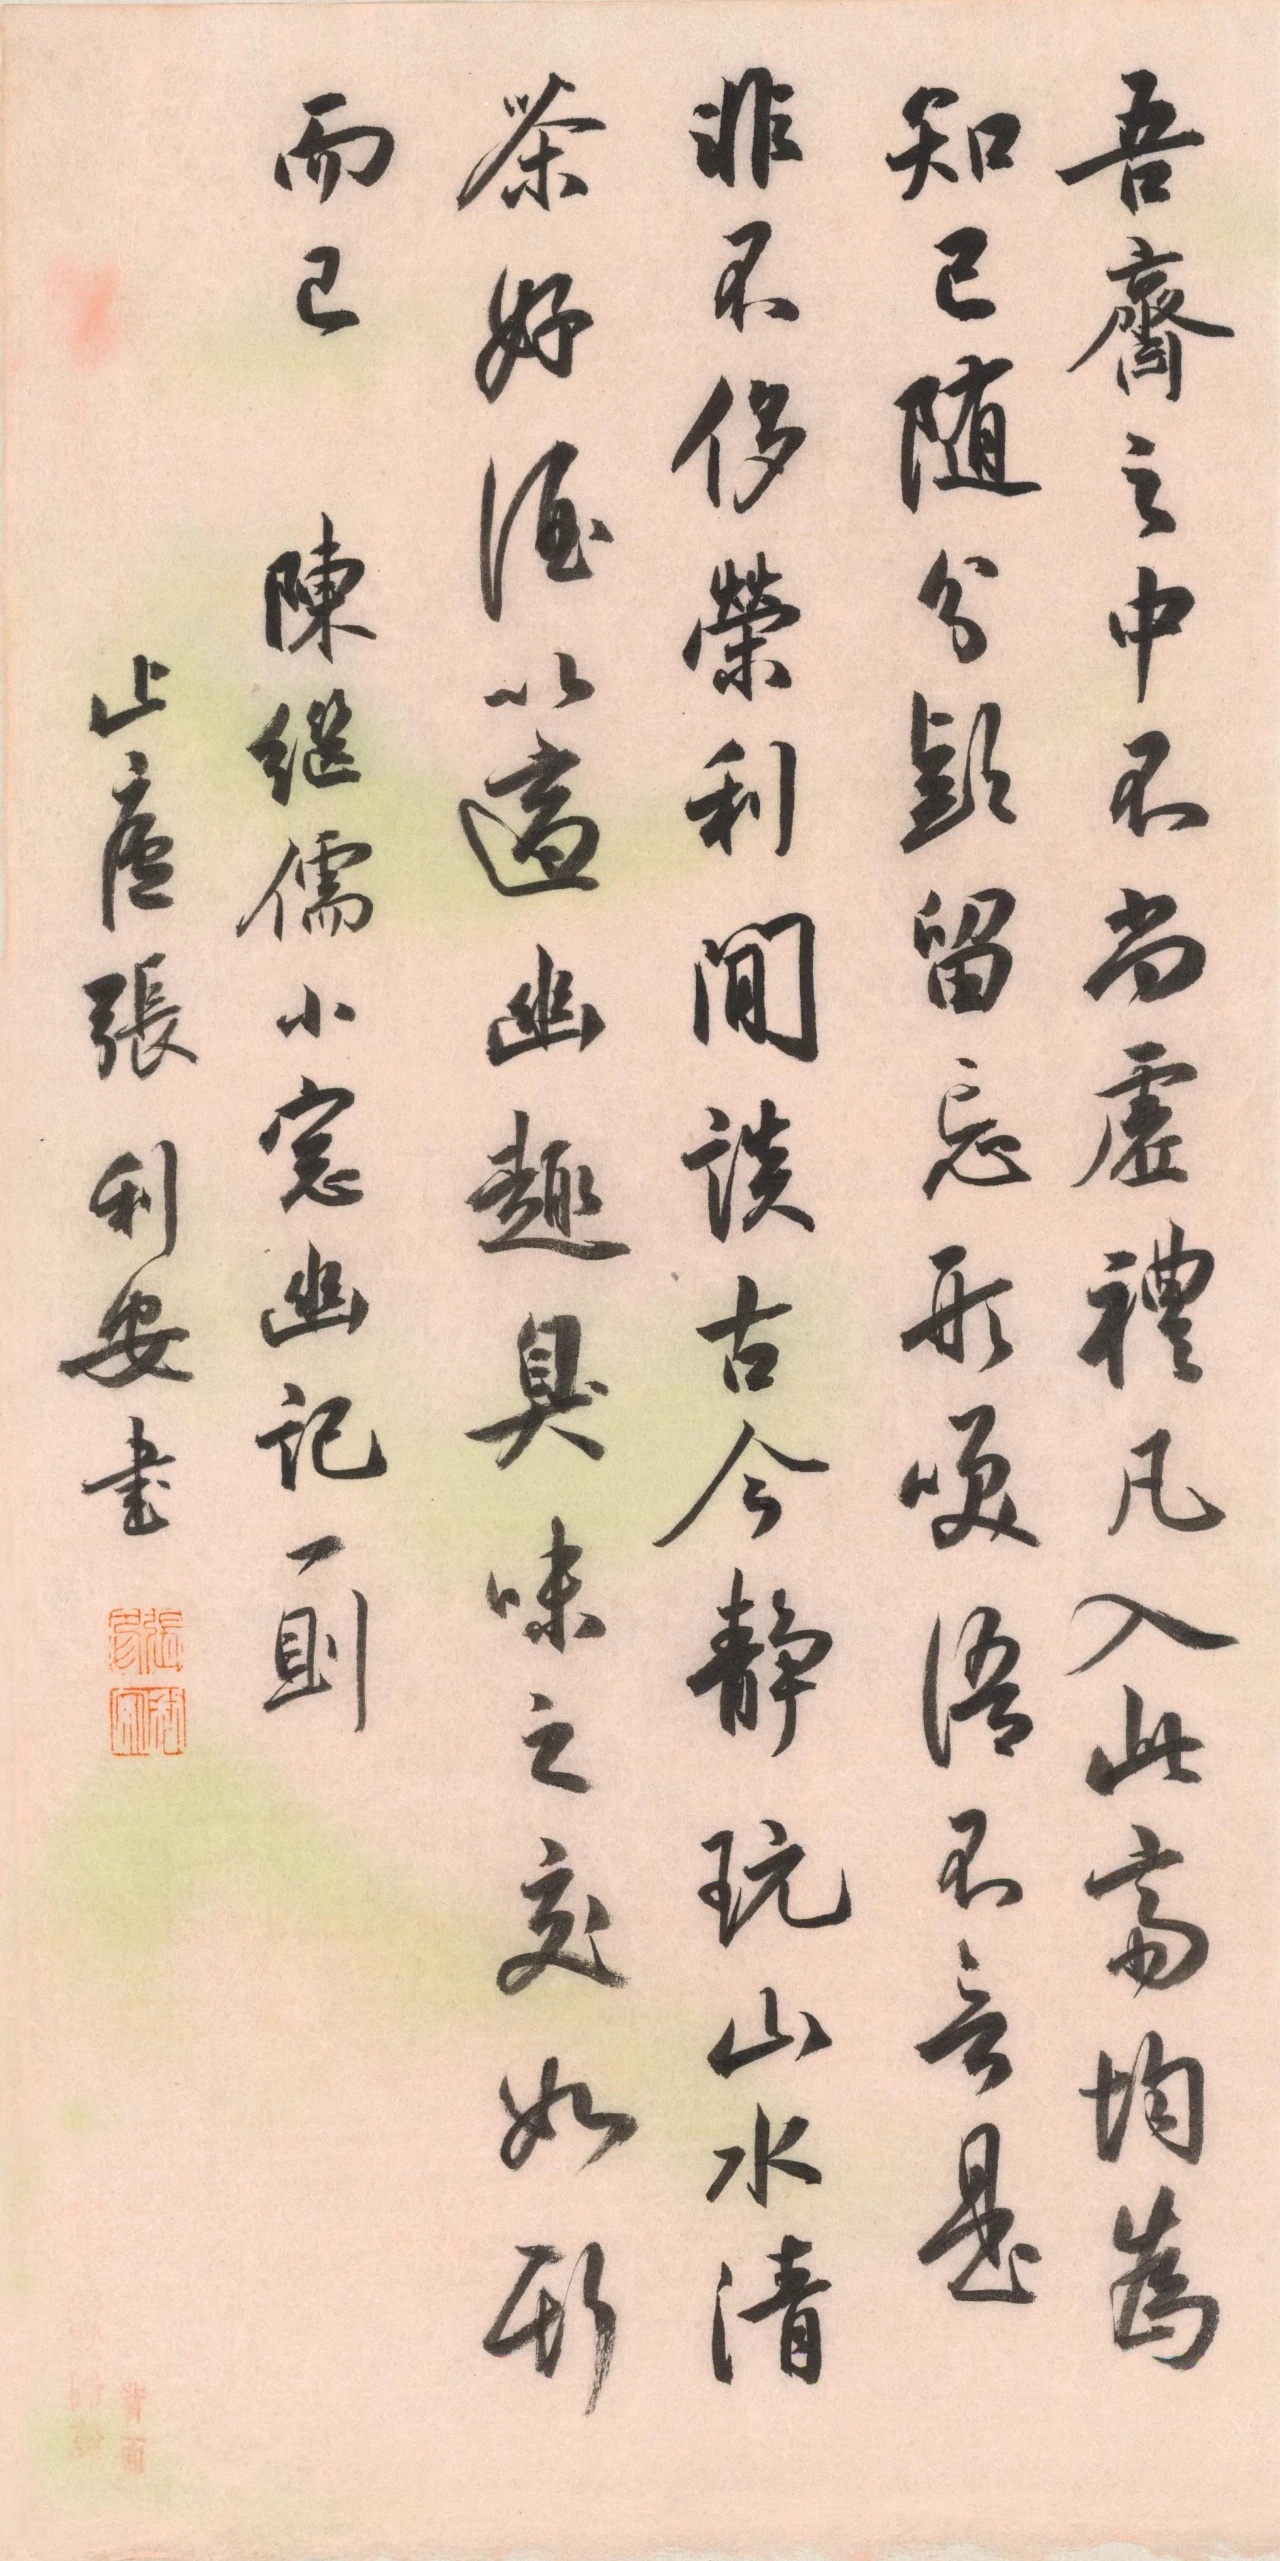 吾齋之中不尚虛禮凡入此齋均為
知己随分款留忘形笑語不言是
非不侈榮利閒談古今静玩山水清
茶好酒以適幽趣臭味之交如斯
而已 陳继儒小窓幽記一則
止虛張利安書